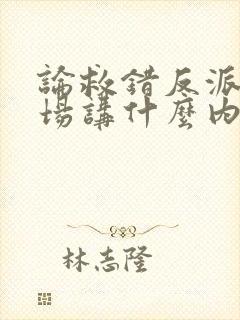 論救錯反派
場講什麼內
林志隆